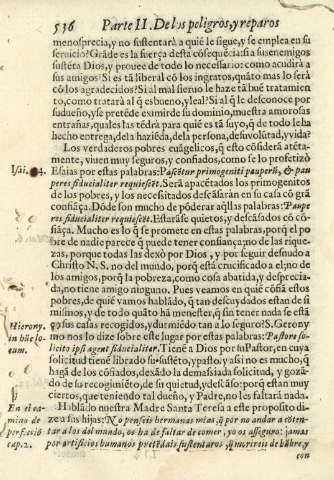 536 Parte II. De los peligros, y reparos
menosprecia, y no sustentarà a quiẽ le sigue, y se emplea en su
servicio? Grãde es la fuerça desta cõsequẽcia: si a sus enemigos
sustẽta Dios, y provee de todo lo necessario: como acudirà a
sus amigos? Si es tã liberal cõ los ingratos, quãto mas lo serà
cõ los agradecidos? Si al mal siervo le haze tã buẽ tratamiẽ
to, como tratarà al q̃ es bueno, y leal? Si al q̃ le desconoce por
su dueño, y se pretẽde eximir de su dominio, muestra amorosas
entrañas, quales las tẽdrà para quiẽ es tã suyo, q̃ de todo le ha
hecho entrega, de la haziẽda, de la persona, de su volũtad, y vida?
Los verdaderos pobres euãgelicos, q̃ esto cõsiderã atẽta-
mente, viuen muy seguros, y confiados, como se lo profetizò
Isai. 14. Esaias por estas palabras: Pascẽtur primogeniti pauperũ, & pau
peres fiducialiter requiescẽt. Serã apacẽtados los primogenitos
de los pobres, y los necessitados descãsaràn en su casa cõ grã
confiãça. Dõde son mucho de põderar aq̃llas palabras: Paupe
res fiducialiter requiescẽt. Estaràse quietos, y descãsados cõ cõ
fiãça. Mucho es lo q̃ se promete en estas palabras, porq̃ el po
bre de nadie parece q̃ puede tener confiança; no de las rique-
zas, porque todas las dexò por Dios, y por seguir desnudo a
Christo N. S. no del mundo, porq̃ està crucificado a el; no de
los amigos, porq̃ la pobreza, como cosa abatida, y desprecia-
da, no tiene amigo ninguno. Pues veamos en quiẽ cõfiã estos
pobres, de quiẽ vamos hablãdo, q̃ tan descuydados estan de si
mismos, y de todo lo q̃ hã menester, q̃ sin tener nada se està
Hierony. q̃dos en sus casas recogidos, y durmiẽdo tan a lo seguro? S. Gerony
in hũc lo- mo nos lo dize sobre este lugar por estas palabras: Pastore so-
cum. licito ipsi agent fiducialiter. Tienẽ a Dios por su Pastor, en cuya
solicitud tienẽ librado su sustẽto, y pasto, y assi no es mucho, q̃
hagã de los cõfiados, dexãdo la demasiada solicitud, y gozã-
do de su recogimiẽto, de su quietud, y descãso: porq̃ estan muy
ciertos, que teniendo tal dueño, y Padre, no les faltarà nada.
En el ca- Hablãdo nuestra Madre Santa Teresa a este proposito di-
mino de ze a sus hijas: No penseis hermanas mias, q̃ por no andar a cõten-
perfeciõ tar a los del mundo, os ha de faltar de comer, yo os asseguro: jamas
cap. 2. por artificios humanos pretẽdais sustentaros, q̃ morireis de hãbre, y
con